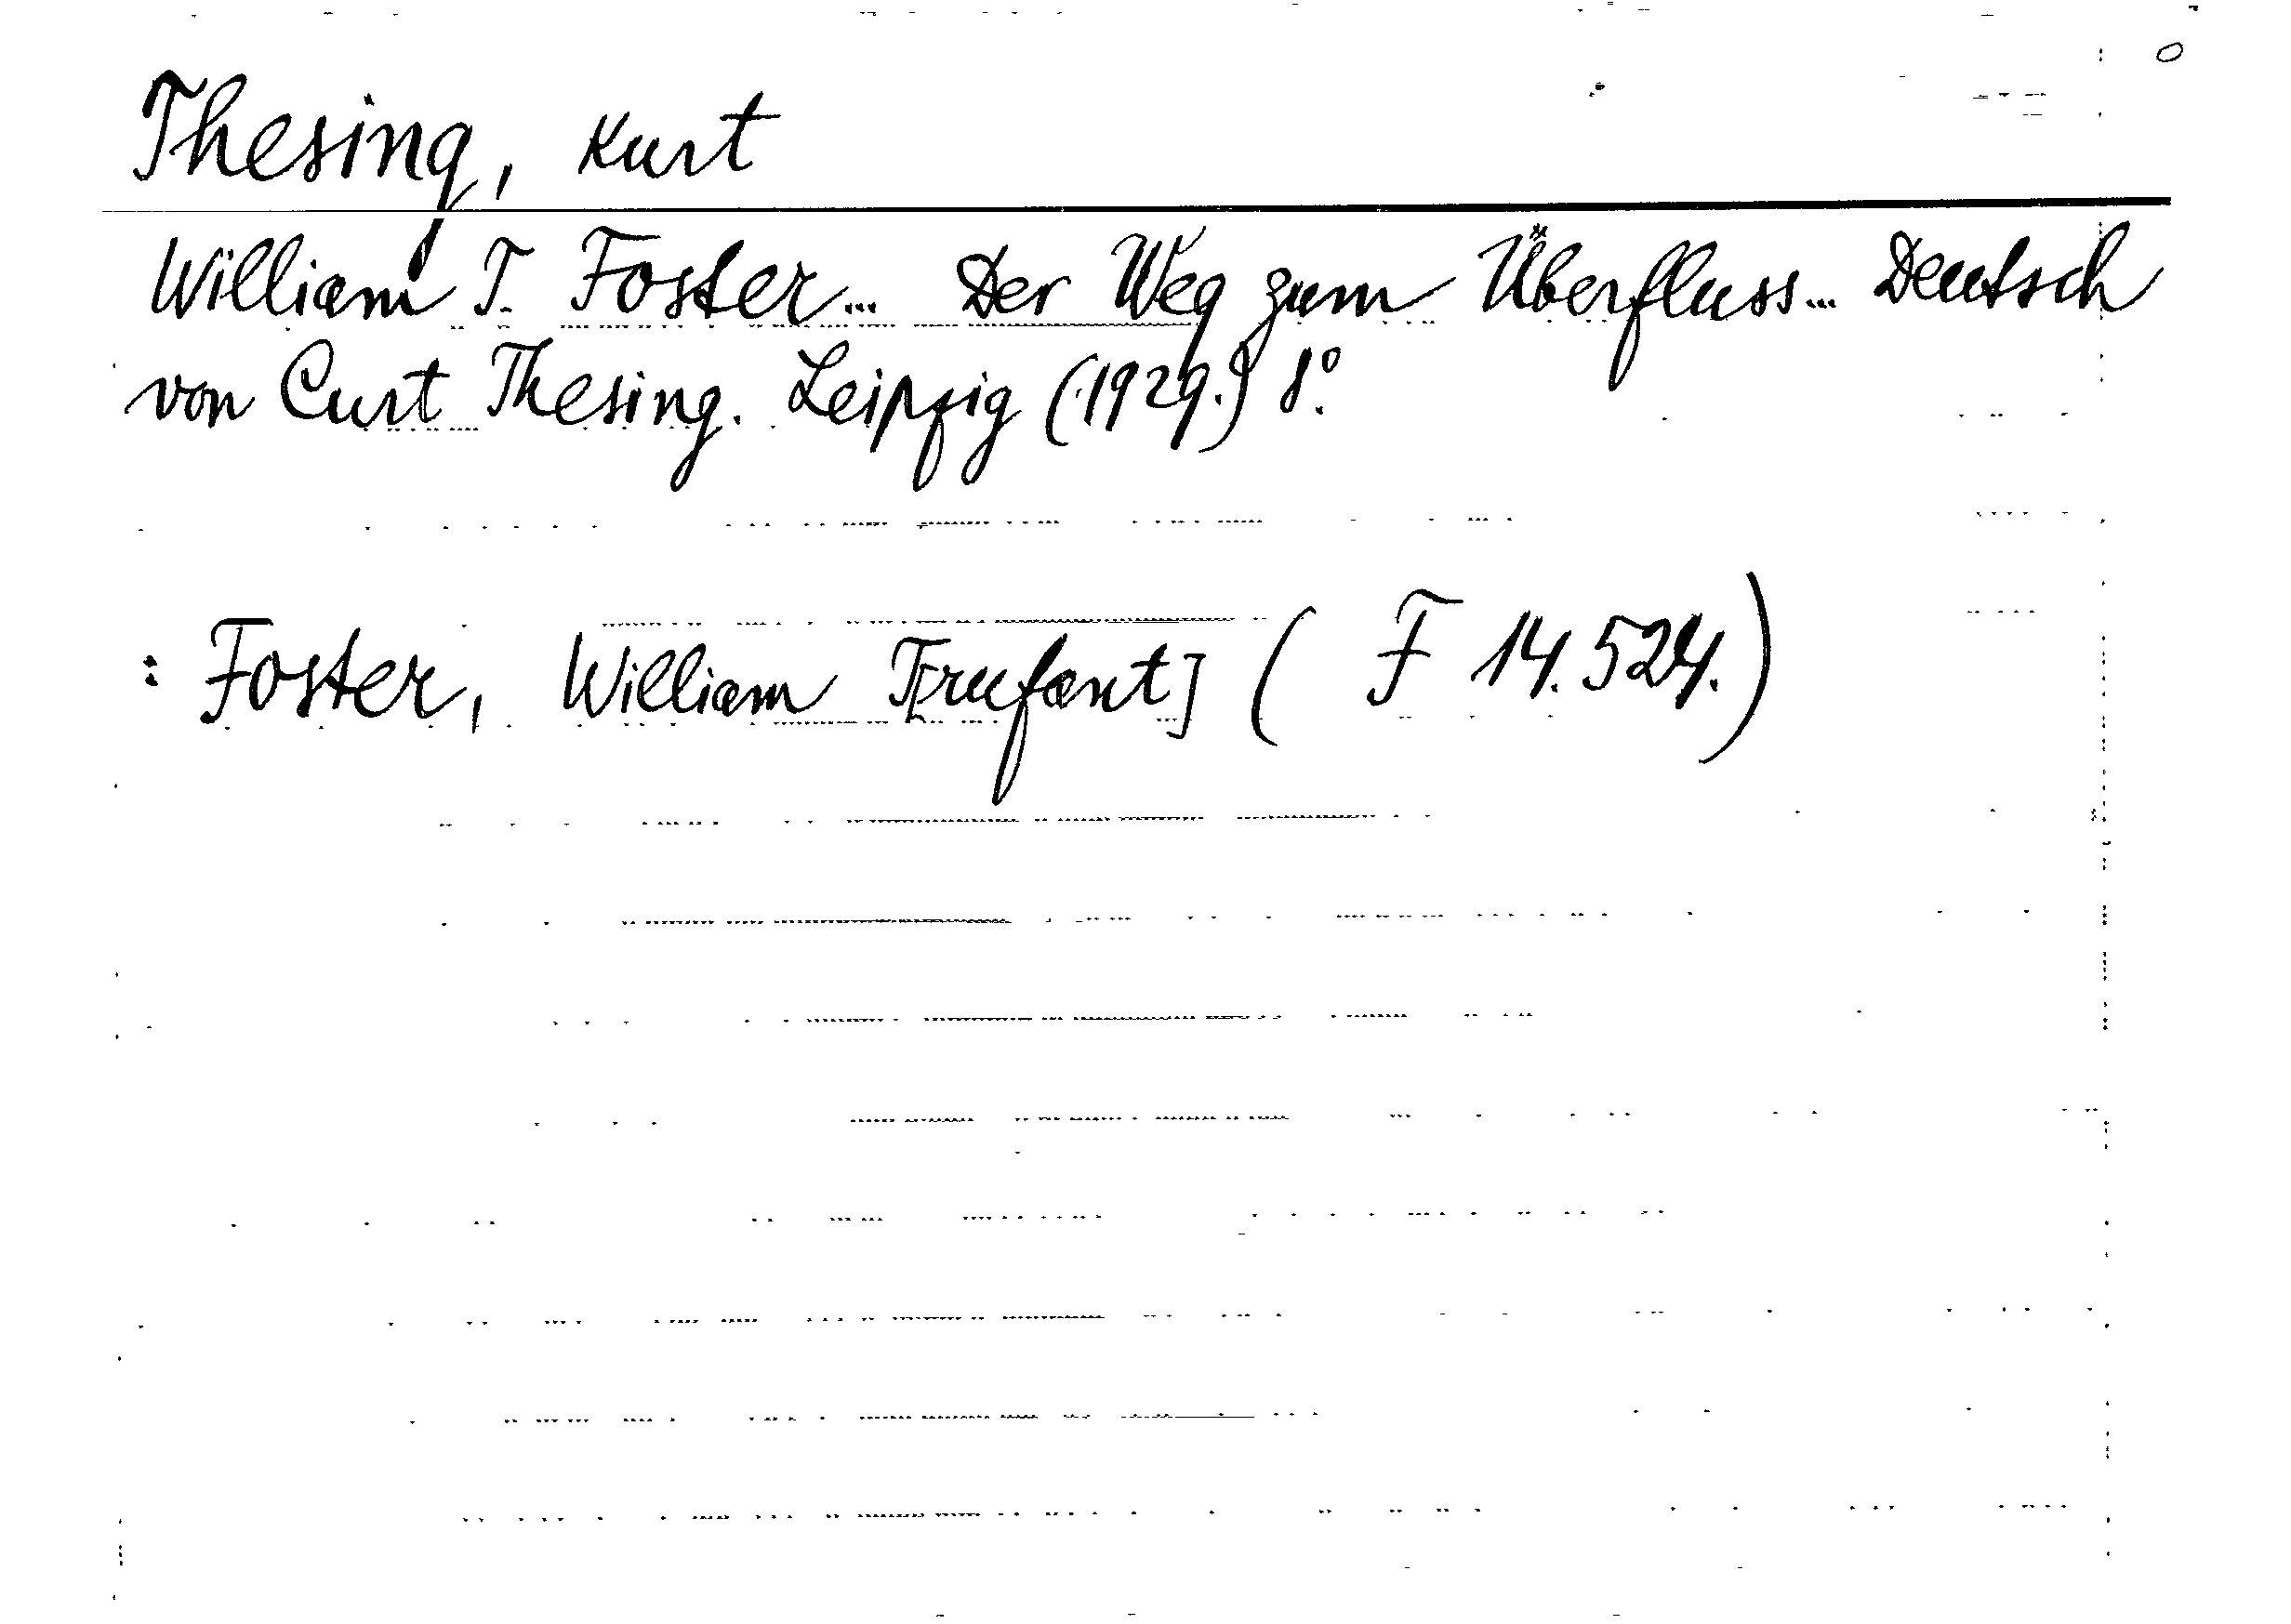 Thesing, Kurt
William T. Foster... Der Weg zum Überfluss... Deutsch
von Curt Thesing. Leipzig (1929.) 8°.
: Foster, William T[rufant] ( F 14.524.)